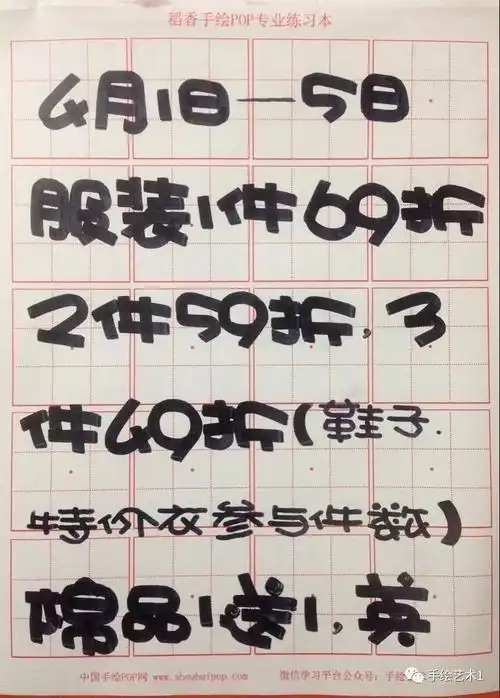 稻香手绘POP专业练习本
4月1日—5日
服装1件69折
2件59折,3
件49折(鞋子.
特价衣参与件数)
棉品1送1,英
中国手绘POP网 www.shouhuipop.com 微信学习平台公众号:手绘
手绘艺术1